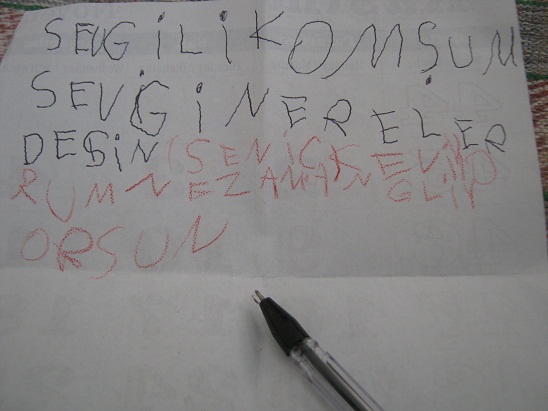 SEVGİLİKOMŞUM
SEVGİNERELER
DESİN (SENİÇKEVİYO
RUMNEZAMANGLİY
ORSUN